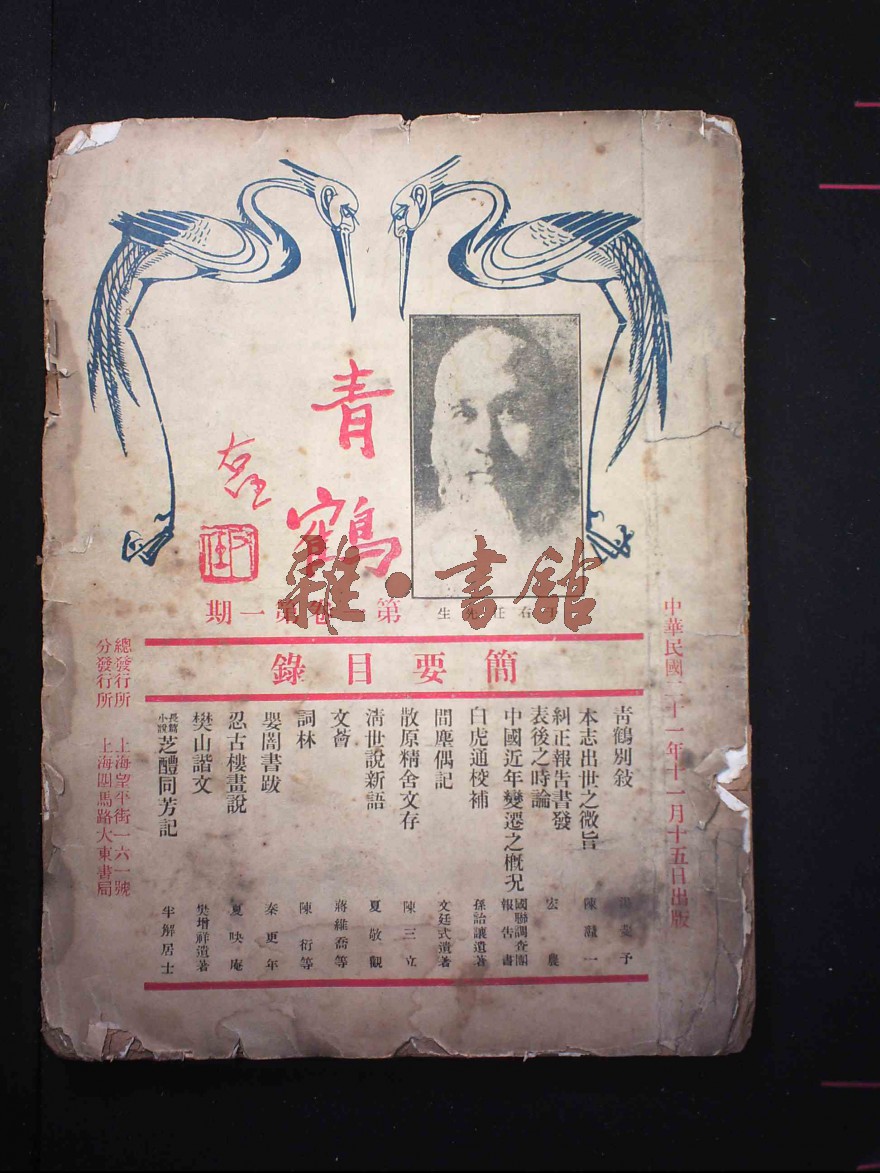 青鶴
第一卷第一期
中華民國二十一年十一月十五日出版
簡要目錄
青鶴別敍
予
本志出世之微旨
陳灨一
糾正報告書發表後之時論
宏農
中國近年變遷之槪況
國聯調查團報告書
白虎通校補
孫詒讓遺著
聞塵偶記
文廷式遺著
散原精舍文存
陳三立
淸世說新語
夏敬觀
文薈
蔣維喬等
詞林
陳衍等
嬰闇書跋
秦更年
忍古樓畫說
夏映庵
樊山諧文
樊增祥遺著
長篇小說 芝醴同芳記
半解居士
總發行所 上海望平街一六一號
分發行所 上海四馬路大東書局
雜·書館